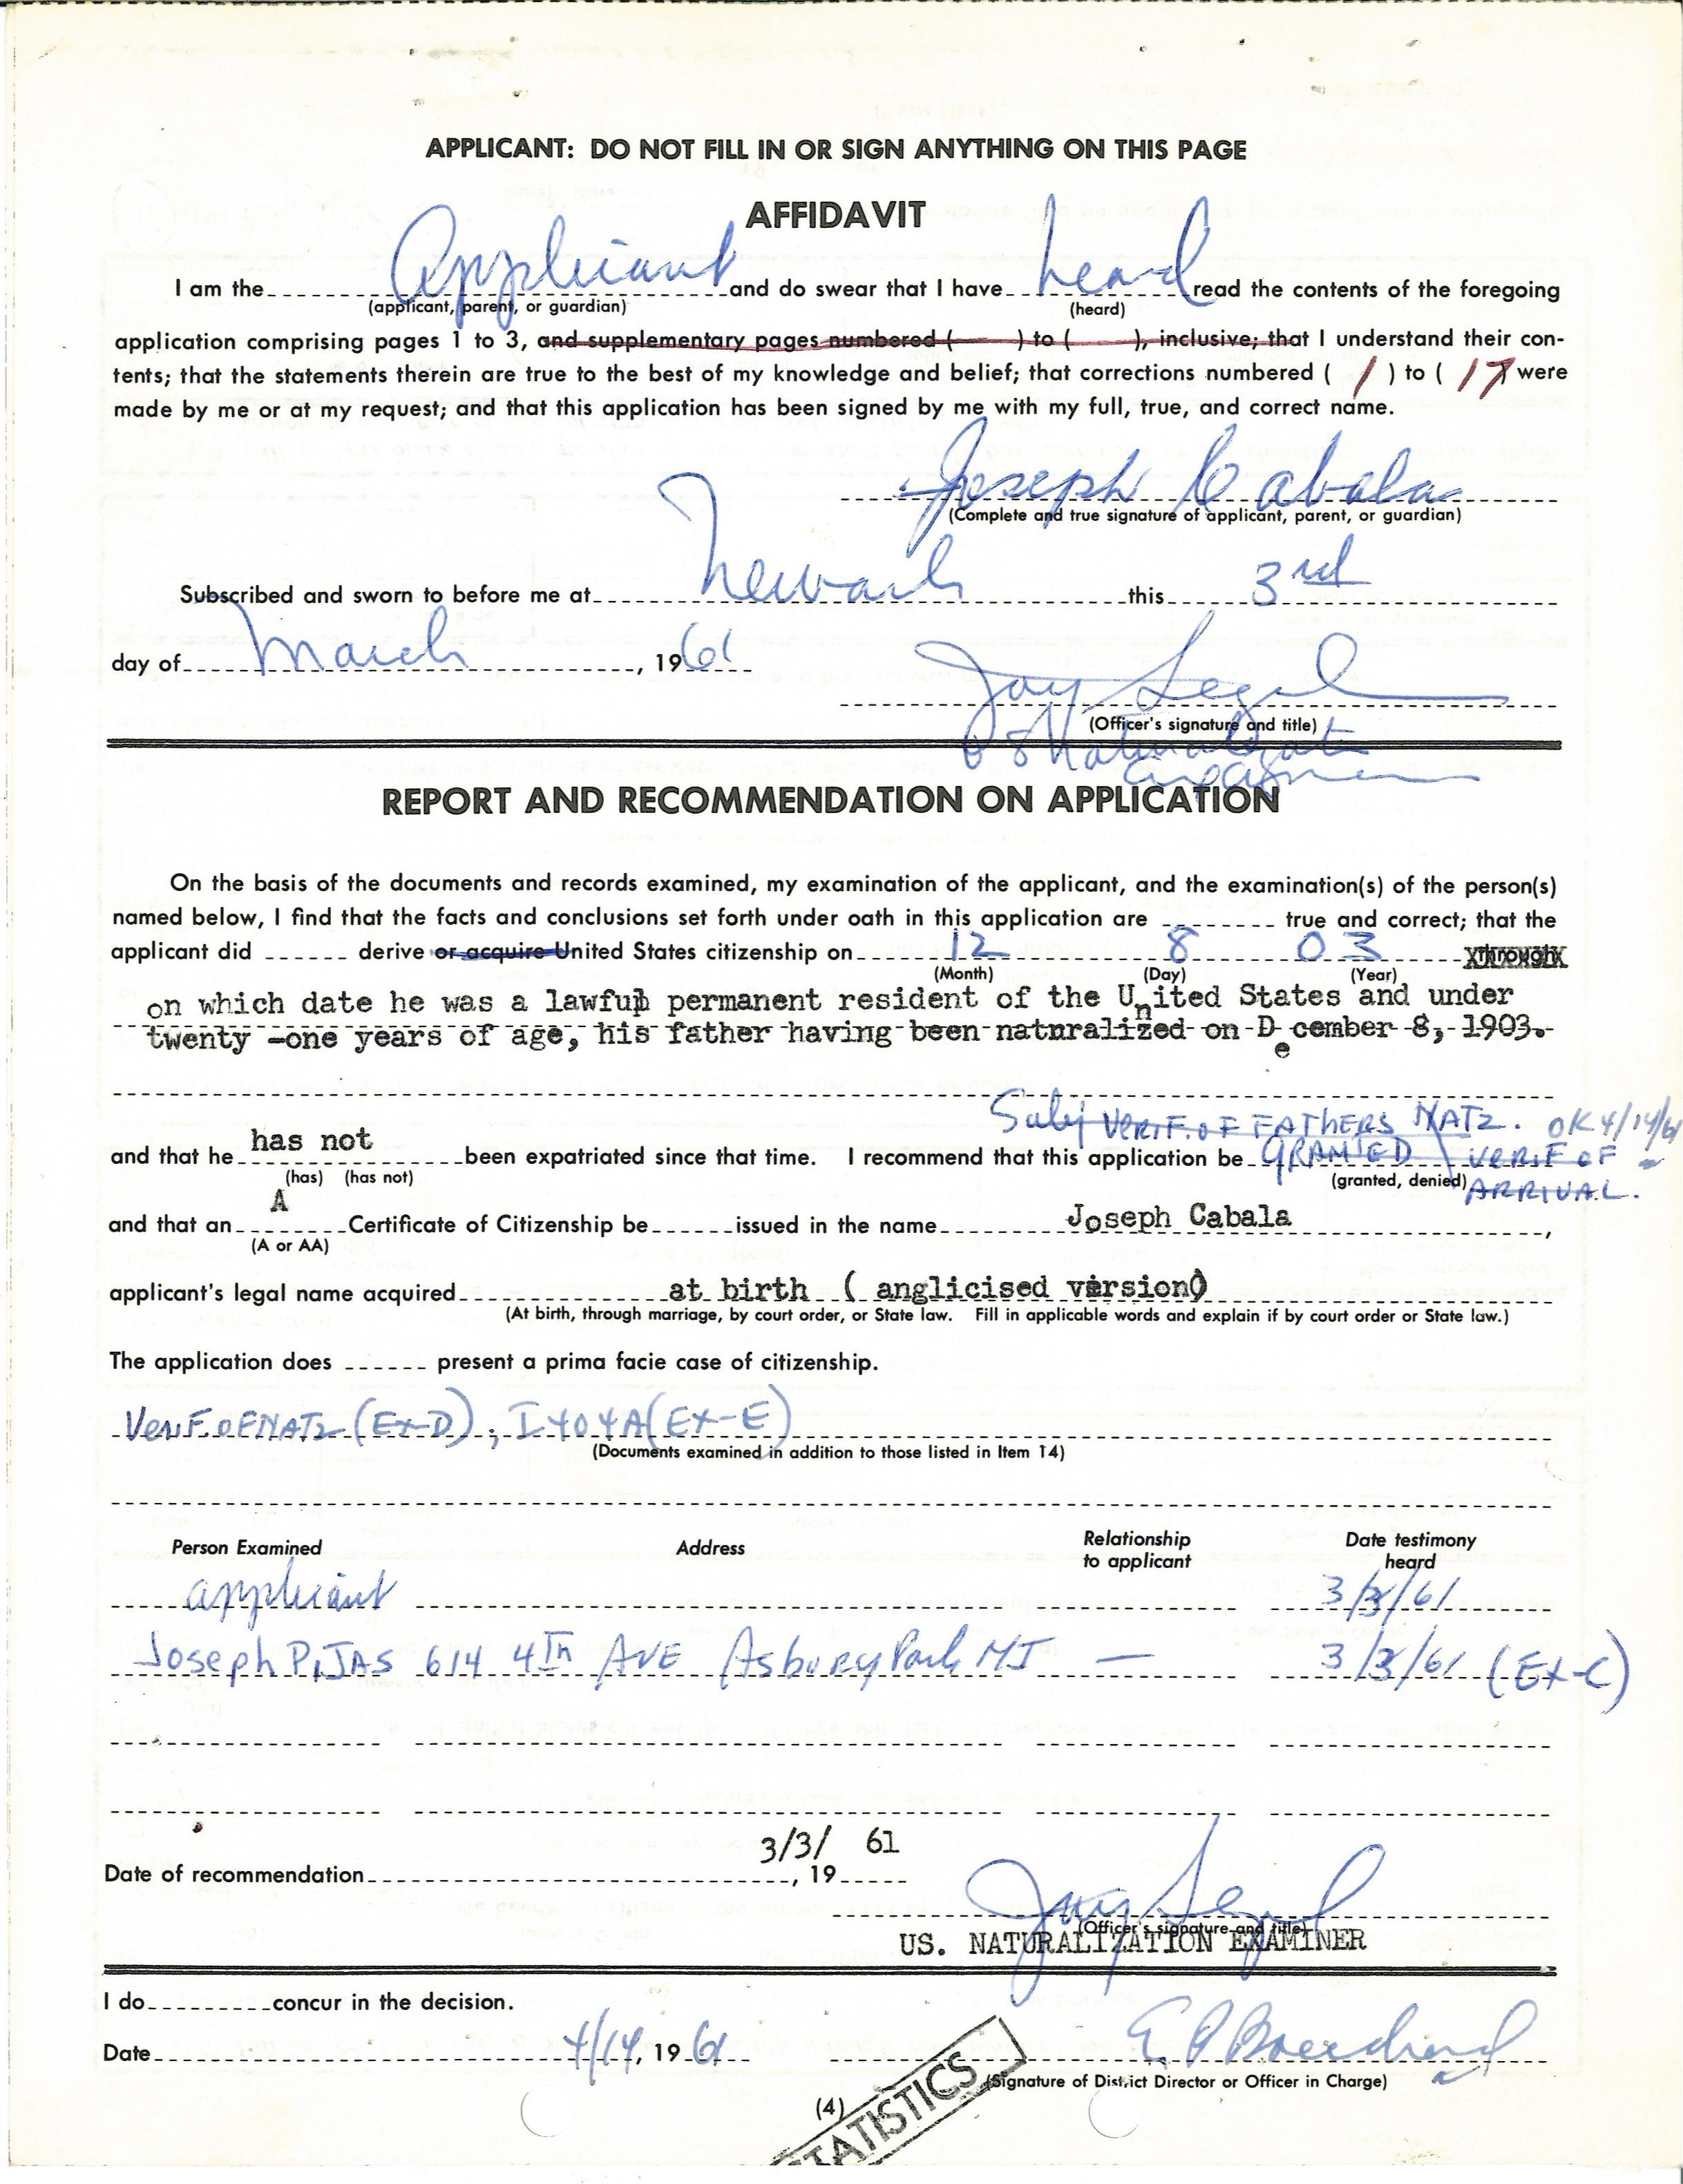 APPLICANT: DO NOT FILL IN OR SIGN ANYTHING ON THIS PAGE
AFFIDAVIT
I am the Applicant and do swear that I have heard read the contents of the foregoing
(applicant, parent, or guardian) (heard)
application comprising pages 1 to 3, and supplementary pages numbered ( ) to ( ), inclusive; that I understand their con-
tents; that the statements therein are true to the best of my knowledge and belief; that corrections numbered ( 1 ) to ( 17 ) were
made by me or at my request; and that this application has been signed by me with my full, true, and correct name.
Joseph Cabala
(Complete and true signature of applicant, parent, or guardian)
Subscribed and sworn to before me at Newark this 3rd
day of March, 1961
Jay Segal
(Officer's signature and title)
US Naturalization
Examiner
REPORT AND RECOMMENDATION ON APPLICATION
On the basis of the documents and records examined, my examination of the applicant, and the examination(s) of the person(s)
named below, I find that the facts and conclusions set forth under oath in this application are ------- true and correct; that the
applicant did ------ derive or acquire United States citizenship on 12 8 03 through
(Month) (Day) (Year)
on which date he was a lawful permanent resident of the United States and under
twenty -one years of age, his father having been naturalized on December 8, 1903.
Subj VERIF. OF FATHERS NATZ. OK 4/14/61
and that he has not been expatriated since that time. I recommend that this application be GRANTED \ VERIF OF
(has) (has not) (granted, denied) ARRIVAL.
and that an A Certificate of Citizenship be ------ issued in the name Joseph Cabala,
(A or AA)
applicant's legal name acquired at birth ( anglicised version)
(At birth, through marriage, by court order, or State law. Fill in applicable words and explain if by court order or State law.)
The application does ------ present a prima facie case of citizenship.
Verif. of NATZ (Ex-D); I404A (Ex-E)
(Documents examined in addition to those listed in Item 14)
Person Examined Address Relationship to applicant Date testimony heard
applicant 3/3/61
Joseph PiJAS 614 4Th AVE Asbury Park NJ — 3/3/61 (Ex-C)
3/3/ 61
Date of recommendation, 19
Jay Segal
(Officer's signature and title)
US. NATURALIZATION EXAMINER
I do concur in the decision.
Date 4/14, 1961
(Signature of District Director or Officer in Charge)
(4)
STATISTICS